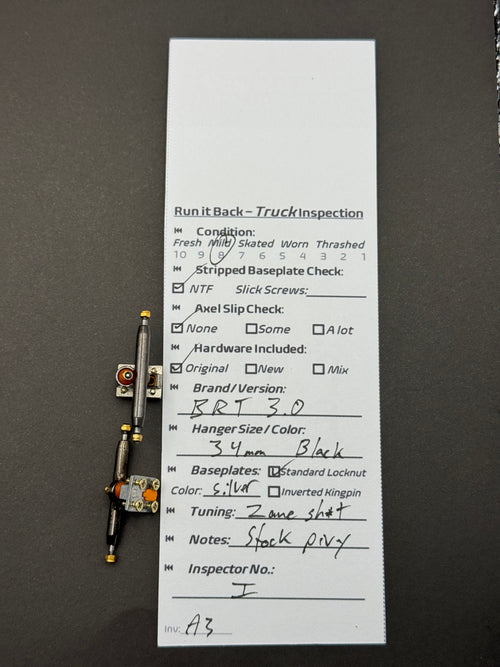 Run it Back – Truck Inspection
Condition:
Fresh Mild Skated Worn Thrashed
10 9 8 7 6 5 4 3 2 1
Stripped Baseplate Check:
NTF Slick Screws:
Axel Slip Check:
None Some A lot
Hardware Included:
Original New Mix
Brand/Version:
BRT 3.0
Hanger Size/Color:
34mm Black
Baseplates: Standard Locknut
Color: Silver Inverted Kingpin
Tuning: Zane sh*t
Notes: Stock pivy
Inspector No.:
I
Inv: A3